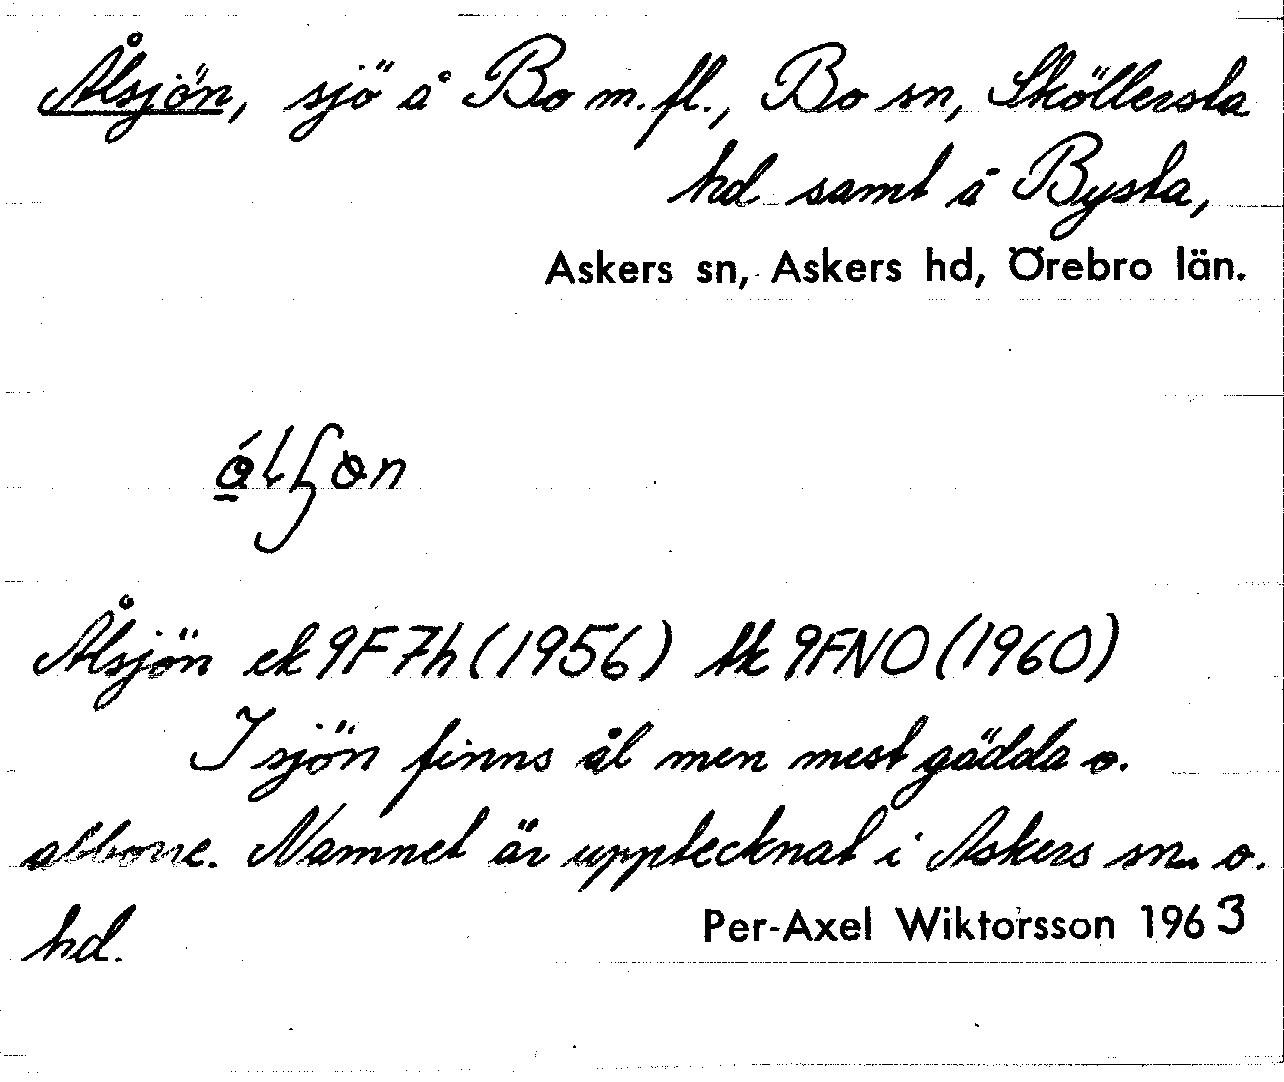 Ålsjön, sjö å Bo m.fl., Bo sn, Sköllersta
hd samt å Bysta,
Askers sn, Askers hd, Örebro län.
Ålsjön ek 9F7h (1956) tk 9FNO (1960)
I sjön finns ål men mest gädda o.
abborre. Namnet är upptecknat i Askers sn o.
hd.
Per-Axel Wiktorsson 1963